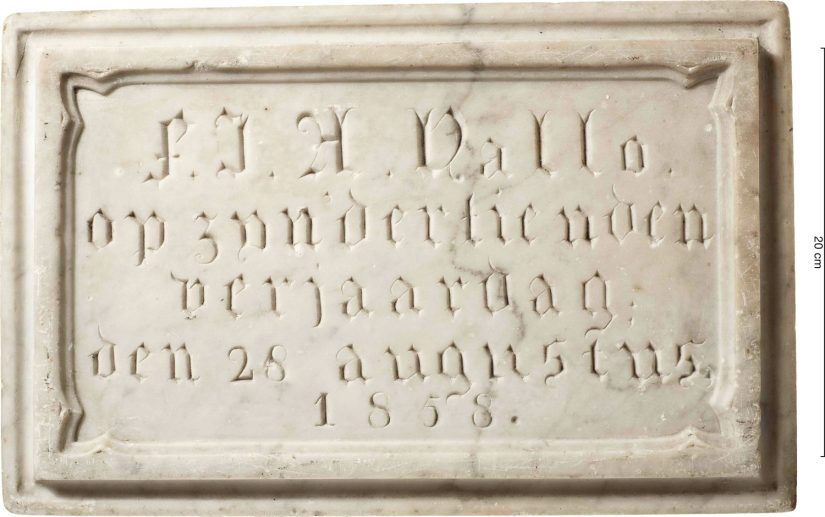 F. J. A.
op zyn dertienden
verjaardag,
den 28 augustus,
1858.